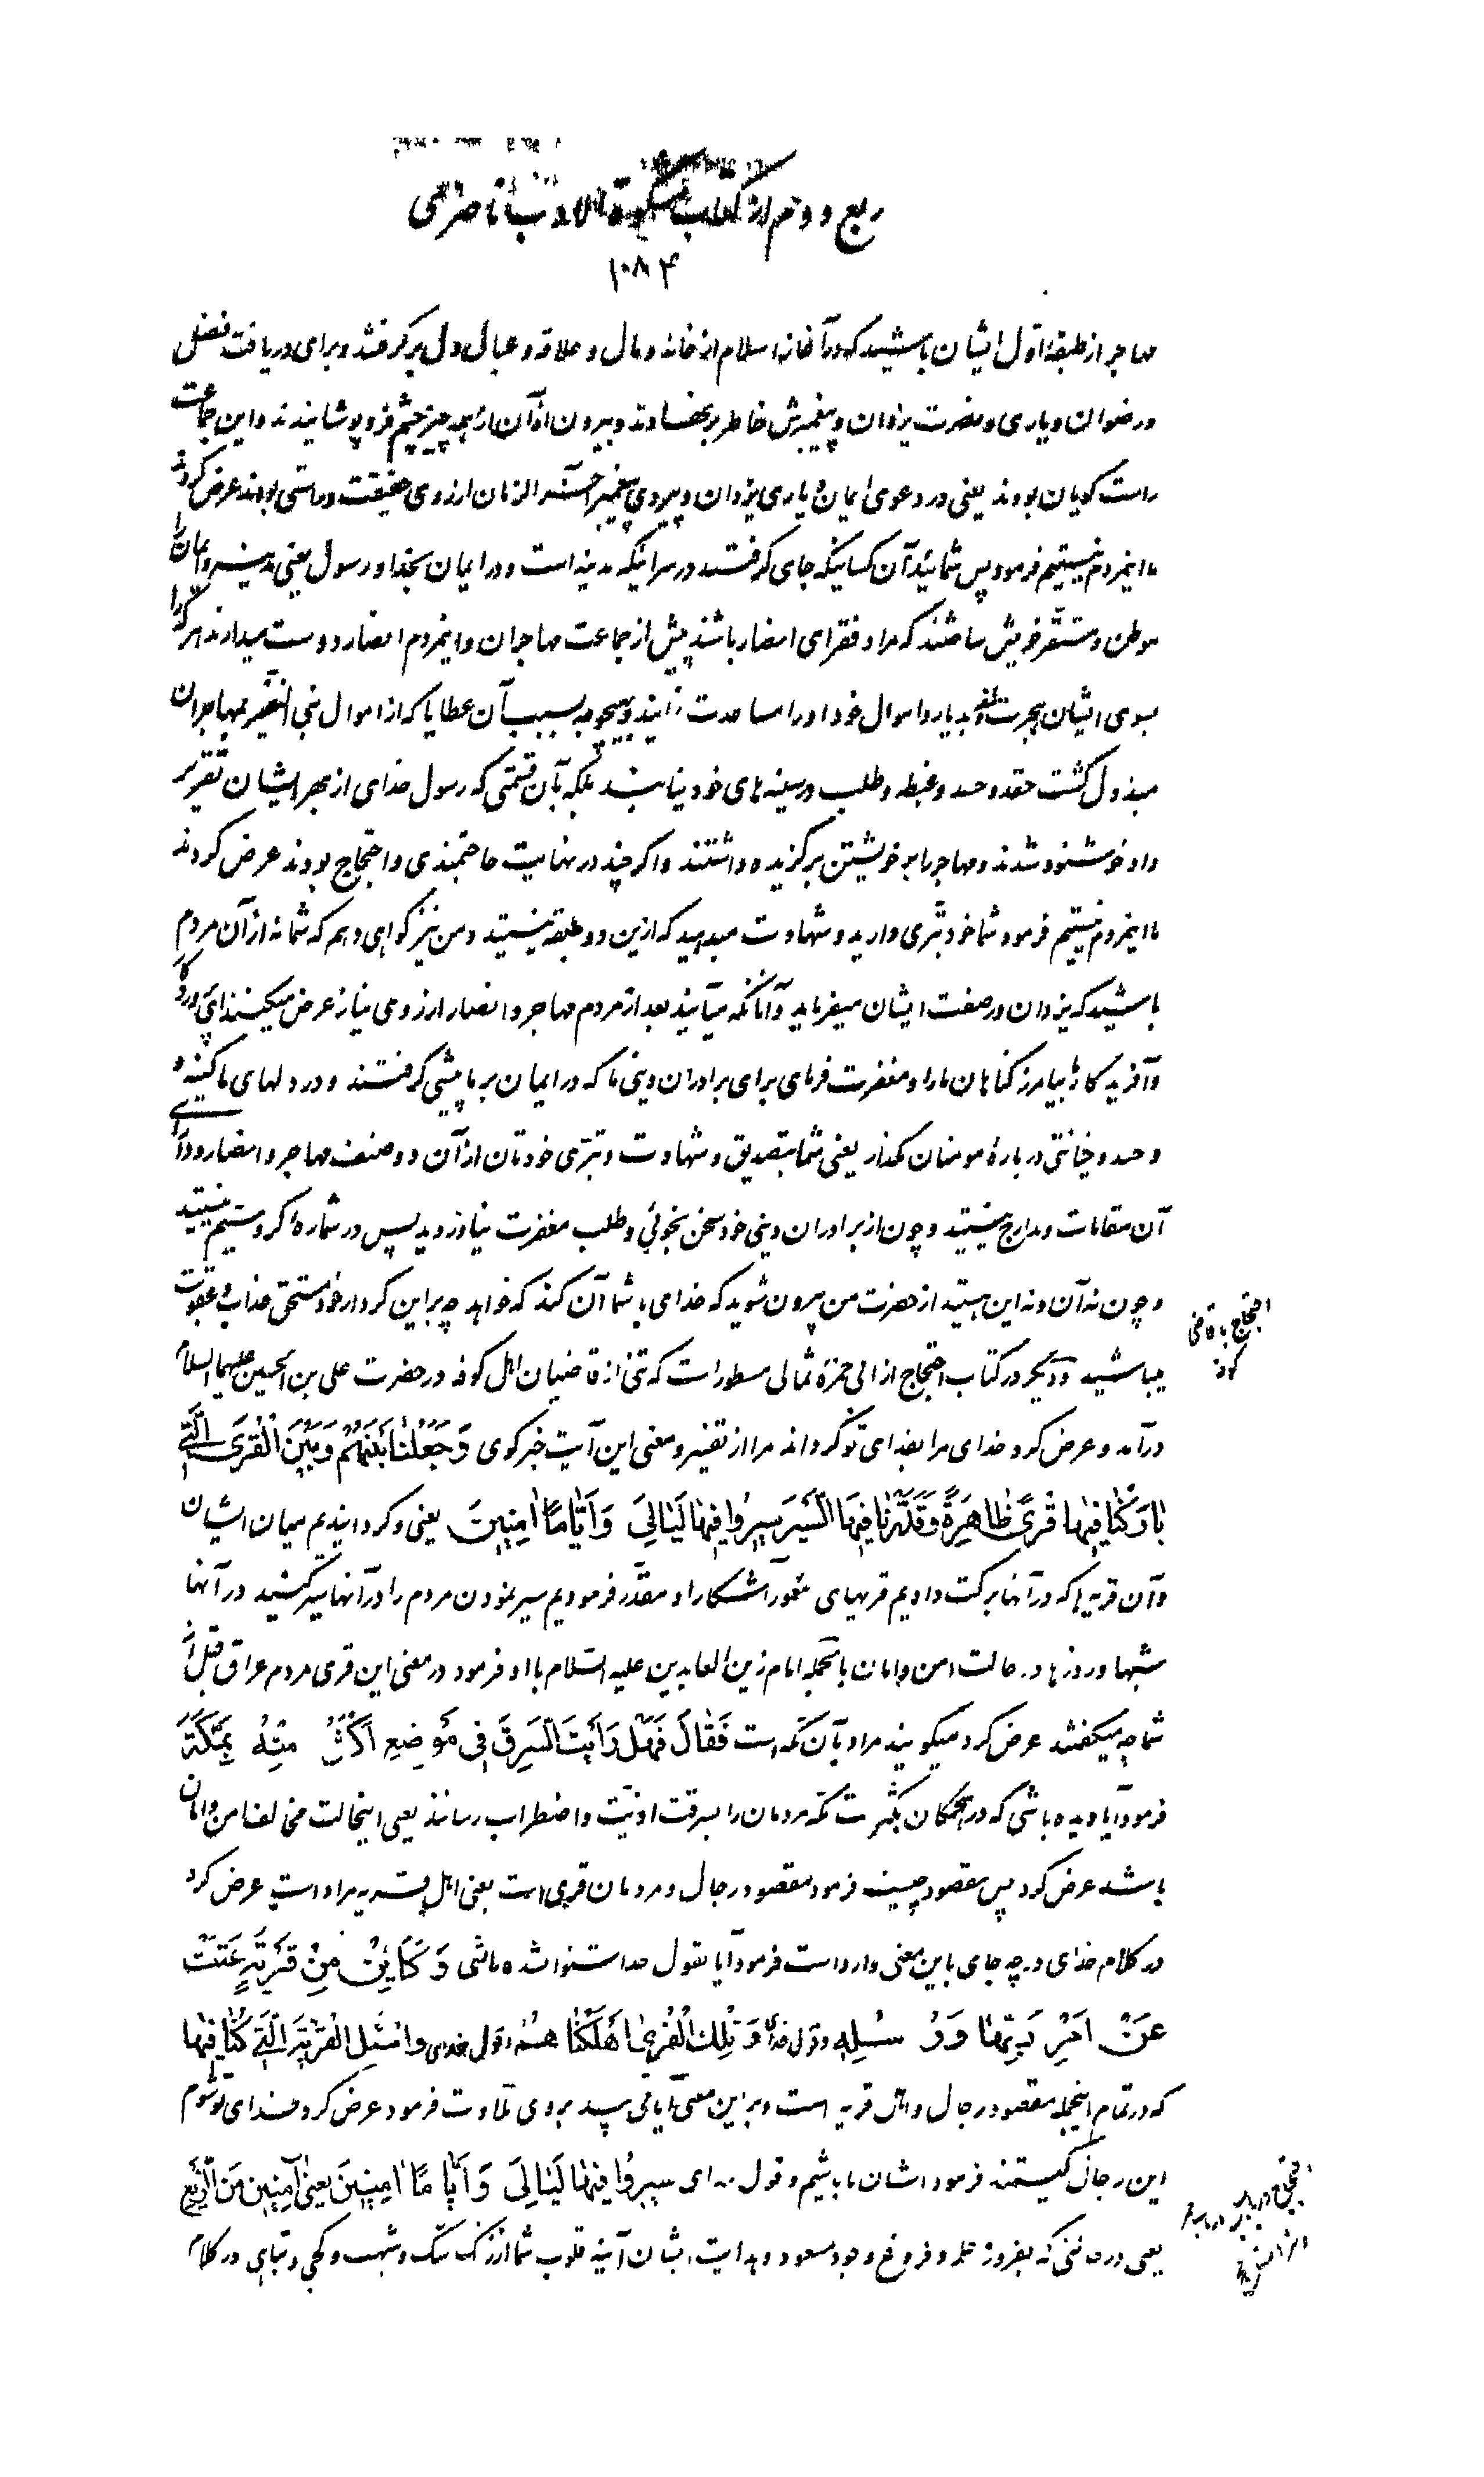 ربع دوم از کتاب مشکوة الادب ناصری
۱۰۸۴
مهاجر از طبقهٔ اول ایشان باشید که در آغاز اسلام از خانه و مال و علاقه و عیال دل برگرفتند و برای دریافت فضل
و رضوان و یاری و نصرت یزدان و پیغمبرش خاطر برنهادند و بیرون از آن از همه چیز چشم فرو پوشانیدند و این جماعت
راست گویان بودند یعنی در دعوی ایمان و یاری یزدان و پیروی پیغمبر آخر الزمان از روی حقیقت و راستی بودند عرض کردند
ما اینمردم نیستیم فرمود پس شمائید آن کسانیکه جای گرفتند در سرائیکه مدینه است و در ایمان بخدا و رسول یعنی مدینه و ایمان را
موطن و مستقر خویش ساختند که مراد فقرای انصار باشند پیش از جماعت مهاجران و اینمردم انصار دوست میدارند هر کرا
بسوی ایشان هجرت کند بدیار و اموال خود او را مساعدت نمایند و بهیچوجه بسبب آن عطایا که از اموال بنی النضیر بمهاجران
مبذول گشت حقد و حسد و غبطه و طلب در سینه های خود نیابند بلکه بآن قسمتی که رسول خدای از بهر ایشان تقریر
داد خوشنود شدند و مهاجر را بر خویشتن برگزیده داشتند و اگر چند در نهایت حاجتمندی و احتجاج بودند عرض کردند
ما اینمردم نیستیم فرمود شما خود تبری دارید و شهادت میدهید که ازین دو طبقه نیستید و من نیز گواهی دهم که شما نه از آن مردم
باشید که یزدان در صفت ایشان میفرماید و آنانکه میآیند بعد از مردم مهاجر و انصار از روی نیاز عرض میکنند ای پروردگار
و آفریدگار ما بیامرز گناهان ما را و مغفرت فرمای برای برادران دینی ما که در ایمان بر ما پیشی گرفتند و در دلهای ما کینه و
و حسد و خیانتی دربارهٔ مومنان مگذار یعنی شما بتصدیق و شهادت و تبری خودتان از آن دو صنف مهاجر و انصار و دارای
آن مقامات و مدارج نیستید و چون از برادران دینی خود سخن بخوبی و طلب مغفرت نیاوردید پس در شمارهٔ گروه سیم نیستید
و چون نه آن و نه این هستید از حضرت من بیرون شوید که خدای با شما آن کند که خواهد چه براین کردار خود مستحق عذاب و عقوبت
میباشید و دیگر در کتاب احتجاج از ابی حمزهٔ ثمالی مسطور است که تنی از قاضیان اهل کوفه در حضرت علی بن الحسین علیهما السلام
درآمد و عرض کرد خدای مرا بفدای تو گرداند مرا از تفسیر و معنی این آیت خبر گوی وَجَعَلْنَا بَیْنَهُمْ وَبَیْنَ الْقُرَی الَّتی
بَارَکْنَا فِیهَا قُرًی ظَاهِرَةً وَقَدَّرْنَا فِیهَا السَّیْرَ سِیرُوا فِیهَا لَیَالِیَ وَاَیَّامًا اٰمِنِینَ یعنی و گردانیدیم میان ایشان
و آن قریه ها که در آنها برکت دادیم قریهای معمور آشکارا و مقدر فرمودیم سیر نمودن مردم را در آنها سیر کنید در آنها
شبها و روزها در حالت امن و امان بالجمله امام زین العابدین علیه السلام با او فرمود در معنی این قری مردم عراق قبل از
شما چه میگفتند عرض کرد میگویند مراد بآن مکه است فَقَالَ فَهَلْ رَاَیْتَ السَّرِقَ فی مَوْضِعٍ اَکْثَرَ مِنْهُ بِمَکَّةَ
فرمود آیا دیده باشی که در هیچ مکان بکثرت مکه مردمان را بسرقت اذیت و اضطراب رسانند یعنی اینحالت مخالف امن و امان
باشد عرض کرد پس مقصود چیست فرمود مقصود رجال و مردمان قری است یعنی اهل قریه مراد است عرض کرد
در کلام خدای در چه جای باین معنی وارد است فرمود آیا بقول خدا شنوا نشده باشی وَکَاَیِّنْ مِنْ قَرْیَةٍ عَتَتْ
عَنْ اَمْرِ رَبِّهَا وَرُسُلِهِ و قول خدای وَتِلْكَ الْقُرٰی اَهْلَکْنَاهُمْ و قول خدای وَاسْئَلِ الْقَرْیَةَ الَّتی کُنَّا فِیهَا
که در تمام اینجمله مقصود رجال و اهل قریه است و براین معنی آیاتی چند بروی تلاوت فرمود عرض کرد فدای تو شوم
این رجال کیستند فرمود ایشان ما باشیم و قول خدای سِیرُوا فِیهَا لَیَالِیَ وَاَیَّامًا اٰمِنِینَ یعنی اٰمِنِینَ مِنَ الزَّیْغِ
یعنی در حالتی که بفروز علم و فروغ وجود مسعود و هدایت ایشان آینه قلوب شما از زنگ شک و شبهت و کجی و تباهی در کلام
احتجاج با قاضی
کوفه